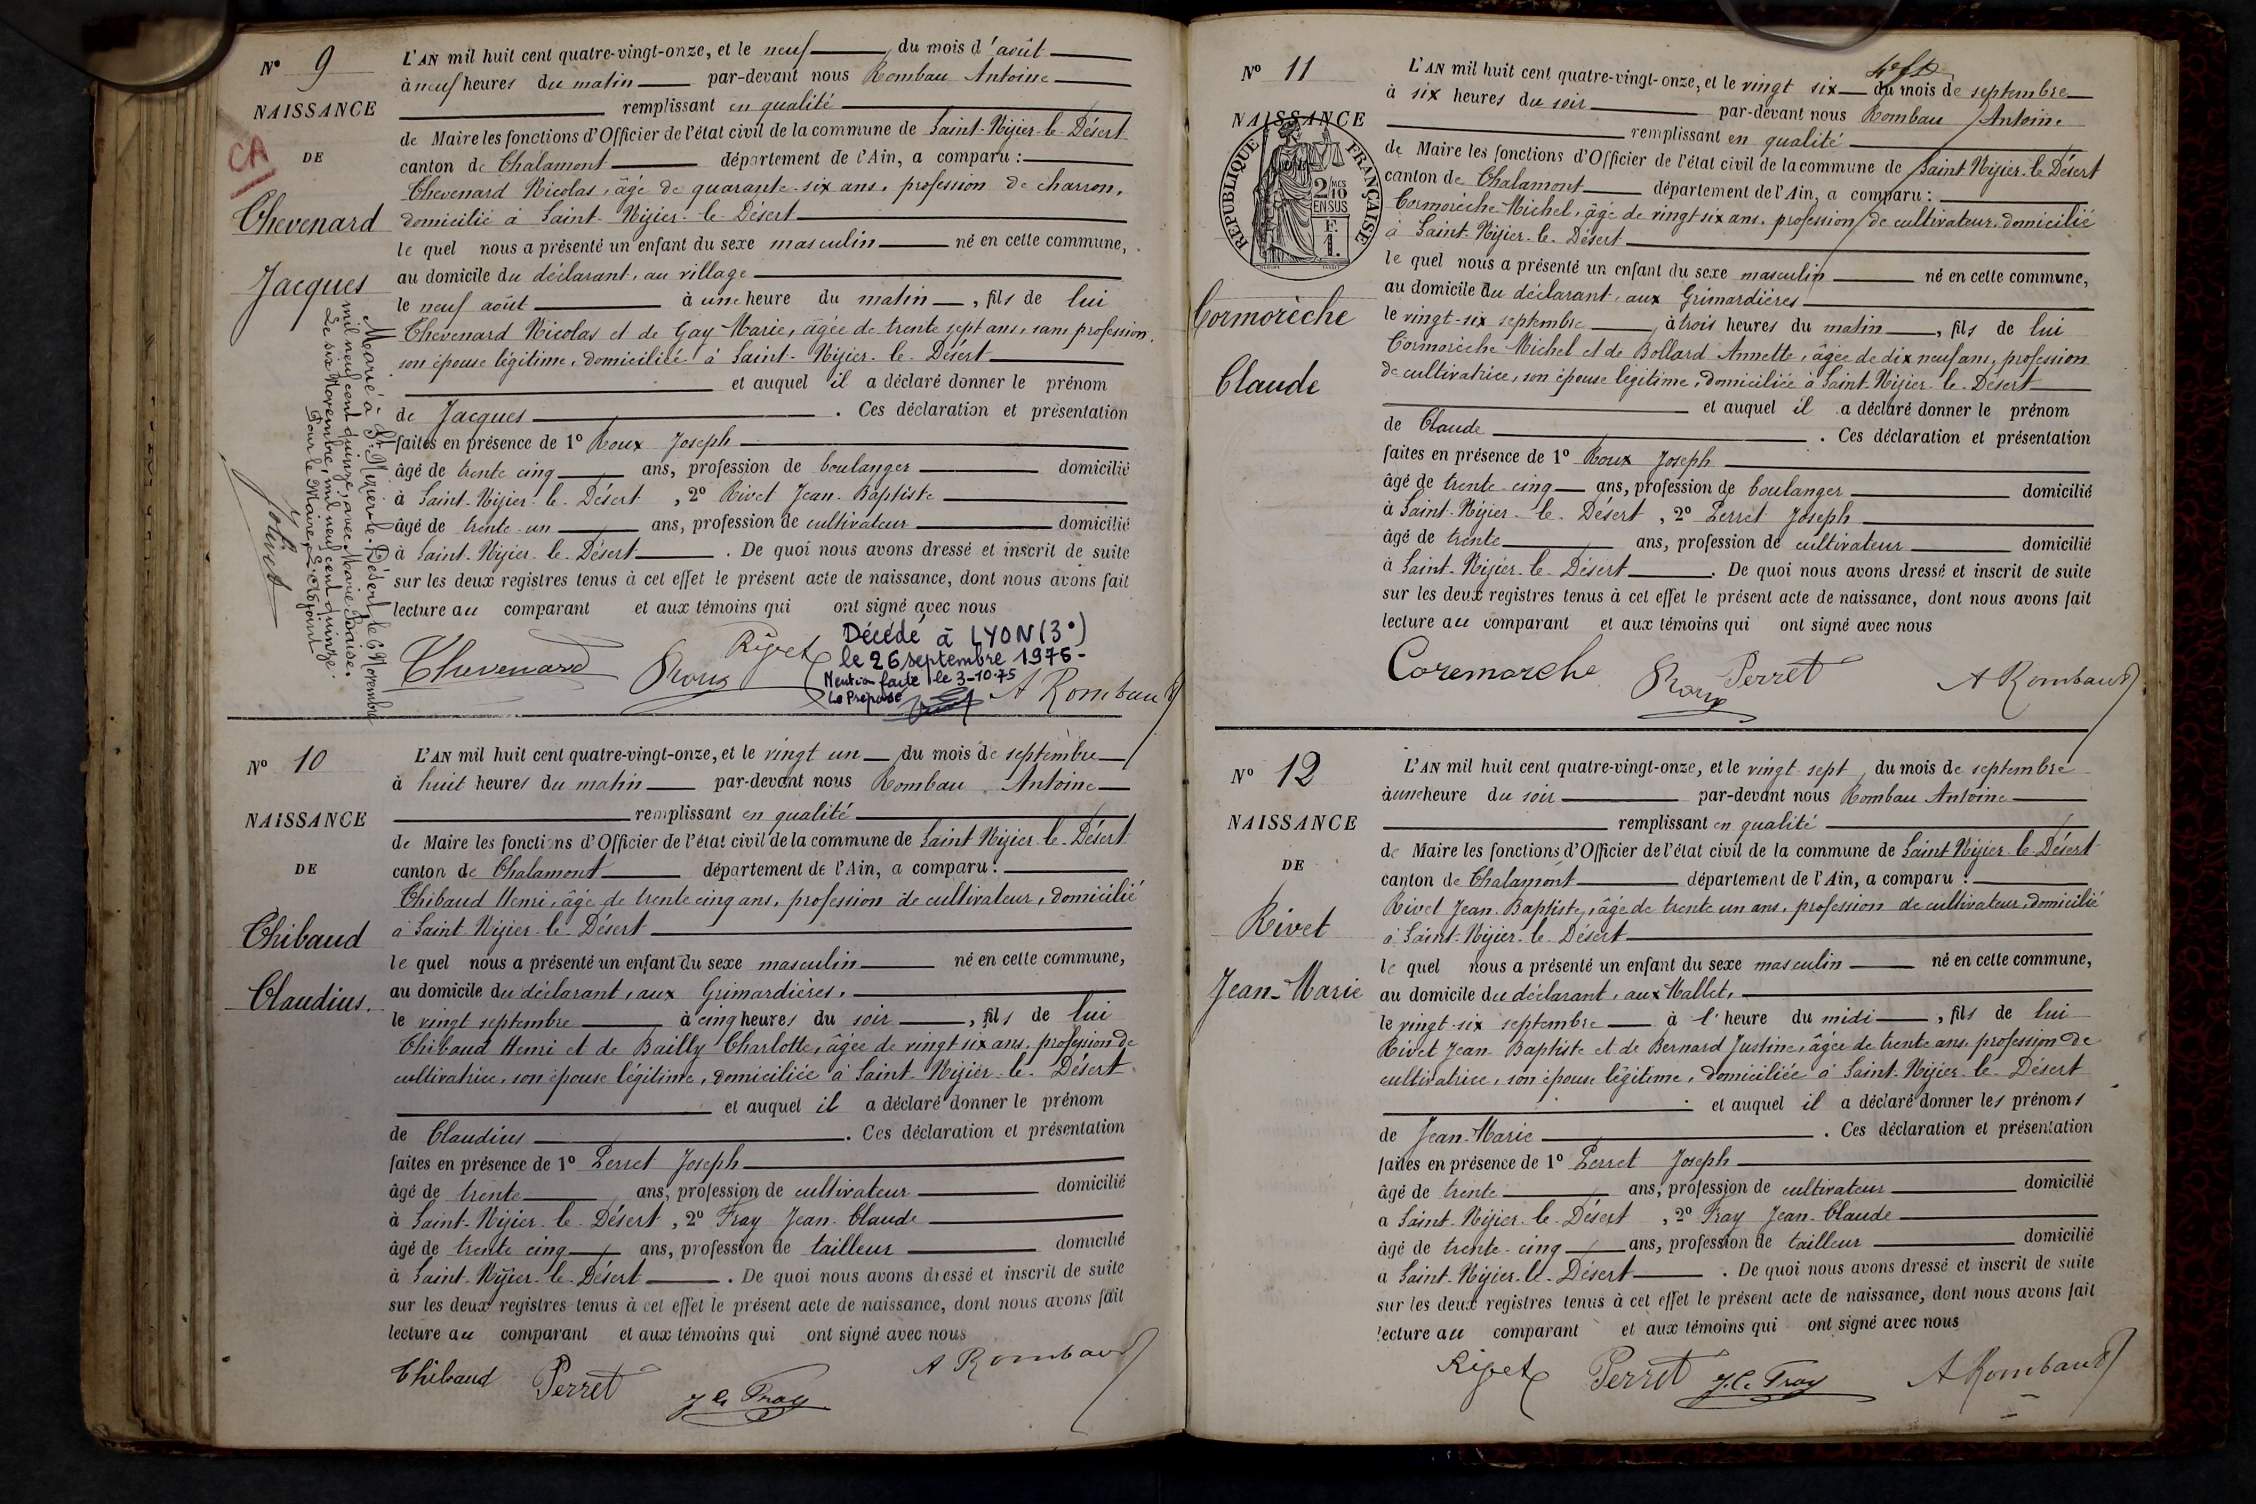 N° 9
NAISSANCE
DE
CA
Chevenard
Jacques
Marié à St Nizier-le-Désert le 6 Novembre
mil neuf cent quinze, avec Marie Baise.
Le six Novembre, mil neuf cent quinze.
Pour le Maire, L'Adjoint
Jolivet
L'AN mil huit cent quatre-vingt-onze, et le neuf du mois d'août
à neuf heures du matin par-devant nous Rombau Antoine
remplissant en qualité
de Maire les fonctions d'Officier de l'état civil de la commune de Saint-Nizier-le-Désert
canton de Chalamont département de l'Ain, a comparu :
Chevenard Nicolas, âgé de quarante-six ans, profession de charron,
domicilié à Saint-Nizier-le-Désert
le quel nous a présenté un enfant du sexe masculin né en cette commune,
au domicile du déclarant, au village
le neuf août à une heure du matin, fils de lui
Chevenard Nicolas et de Gay Marie, âgée de trente sept ans, sans profession,
son épouse légitime, domiciliée à Saint-Nizier-le-Désert
et auquel il a déclaré donner le prénom
de Jacques. Ces déclaration et présentation
faites en présence de 1° Roux Joseph
âgé de trente cinq ans, profession de boulanger domicilié
à Saint-Nizier-le-Désert, 2° Rivet Jean-Baptiste
âgé de trente-un ans, profession de cultivateur domicilié
à Saint-Nizier-le-Désert. De quoi nous avons dressé et inscrit de suite
sur les deux registres tenus à cet effet le présent acte de naissance, dont nous avons fait
lecture au comparant et aux témoins qui ont signé avec nous
Chevenard Roux Rivet A Rombaud
Décédé à LYON (3°)
le 26 septembre 1975-
Mention faite le 3-10-75
Le Préposé
N° 10
NAISSANCE
DE
Chibaud
Claudius.
L'AN mil huit cent quatre-vingt-onze, et le vingt un du mois de septembre
à huit heures du matin par-devant nous Rombau Antoine
remplissant en qualité
de Maire les fonctions d'Officier de l'état civil de la commune de Saint Nizier-le-Désert
canton de Chalamont département de l'Ain, a comparu :
Chibaud Henri, âgé de trente cinq ans, profession de cultivateur, domicilié
à Saint-Nizier-le-Désert
le quel nous a présenté un enfant du sexe masculin né en cette commune,
au domicile du déclarant, aux Grimardières,
le vingt septembre à cinq heures du soir, fils de lui
Chibaud Henri et de Bailly Charlotte, âgée de vingt six ans, profession de
cultivatrice, son épouse légitime, domiciliée à Saint-Nizier-le-Désert
et auquel il a déclaré donner le prénom
de Claudius. Ces déclaration et présentation
faites en présence de 1° Perret Joseph
âgé de trente ans, profession de cultivateur domicilié
à Saint-Nizier-le-Désert, 2° Fray Jean-Claude
âgé de trente cinq ans, profession de tailleur domicilié
à Saint-Nizier-le-Désert. De quoi nous avons dressé et inscrit de suite
sur les deux registres tenus à cet effet le présent acte de naissance, dont nous avons fait
lecture au comparant et aux témoins qui ont signé avec nous
Chibaud Perret J Cl Fray A Rombaud
N° 11
NAISSANCE
RÉPUBLIQUE FRANÇAISE
2/10 MES
EN SUS
F.
1.
Cormorèche
Claude
L'AN mil huit cent quatre-vingt-onze, et le vingt six du mois de septembre
à six heures du soir par-devant nous Rombau Antoine
remplissant en qualité
de Maire les fonctions d'Officier de l'état civil de la commune de Saint Nizier-le-Désert
canton de Chalamont département de l'Ain, a comparu :
Cormorèche Michel, âgé de vingt six ans, profession de cultivateur, domicilié
à Saint-Nizier-le-Désert
le quel nous a présenté un enfant du sexe masculin né en cette commune,
au domicile du déclarant, aux Grimardières
le vingt-six septembre, à trois heures du matin, fils de lui
Cormorèche Michel et de Bollard Annette, âgée de dix neuf ans, profession
de cultivatrice, son épouse légitime, domiciliée à Saint-Nizier-le-Désert
et auquel il a déclaré donner le prénom
de Claude. Ces déclaration et présentation
faites en présence de 1° Roux Joseph
âgé de trente-cinq ans, profession de boulanger domicilié
à Saint-Nizier-le-Désert, 2° Perret Joseph
âgé de trente ans, profession de cultivateur domicilié
à Saint-Nizier-le-Désert. De quoi nous avons dressé et inscrit de suite
sur les deux registres tenus à cet effet le présent acte de naissance, dont nous avons fait
lecture au comparant et aux témoins qui ont signé avec nous
Coremorche Roux Perret A Rombaud
N° 12
NAISSANCE
DE
Rivet
Jean-Marie
L'AN mil huit cent quatre-vingt-onze, et le vingt-sept du mois de septembre
à une heure du soir par-devant nous Rombau Antoine
remplissant en qualité
de Maire les fonctions d'Officier de l'état civil de la commune de Saint Nizier-le-Désert
canton de Chalamont département de l'Ain, a comparu :
Rivet Jean-Baptiste, âgé de trente un ans, profession de cultivateur, domicilié
à Saint-Nizier-le-Désert
le quel nous a présenté un enfant du sexe masculin né en cette commune,
au domicile du déclarant, aux Mallet,
le vingt-six septembre à l'heure du midi, fils de lui
Rivet Jean-Baptiste et de Bernard Justine, âgée de trente ans, profession de
cultivatrice, son épouse légitime, domiciliée à Saint-Nizier-le-Désert
et auquel il a déclaré donner les prénoms
de Jean-Marie. Ces déclaration et présentation
faites en présence de 1° Perret Joseph
âgé de trente ans, profession de cultivateur domicilié
à Saint-Nizier-le-Désert, 2° Fray Jean-Claude
âgé de trente-cinq ans, profession de tailleur domicilié
à Saint-Nizier-le-Désert. De quoi nous avons dressé et inscrit de suite
sur les deux registres tenus à cet effet le présent acte de naissance, dont nous avons fait
lecture au comparant et aux témoins qui ont signé avec nous
Rivet Perret J. C. Fray A Rombaud